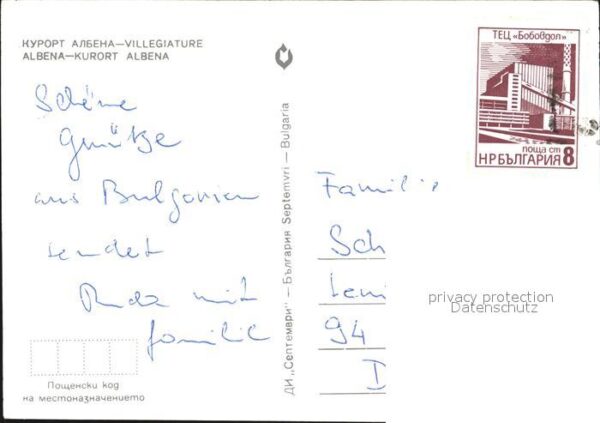 КУРОРТ АЛБЕНА—VILLEGIATURE
ALBENA—KURORT ALBENA
Schöne
Grüße
aus Bulgarien
sendet
mit
familie
Пощенски код
на местоназначението
ДИ „Септември" — България Septemvri — Bulgaria
ТЕЦ „Бобовдол"
поща ст
НР БЪЛГАРИЯ 8
Familie
Sch
Leni
94
D
privacy protection
Datenschutz